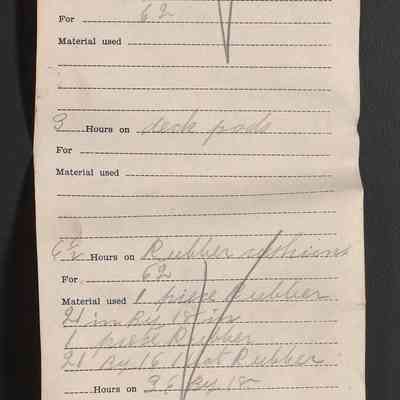 For 62
Material used
3 Hours on deck pads
For
Material used
6½ Hours on Rubber cushions
For 62
Material used 1 piece Rubber
21 in By 18 in
1 piece Rubber
21 By 16 1 Rubber
Hours on 36 By 18